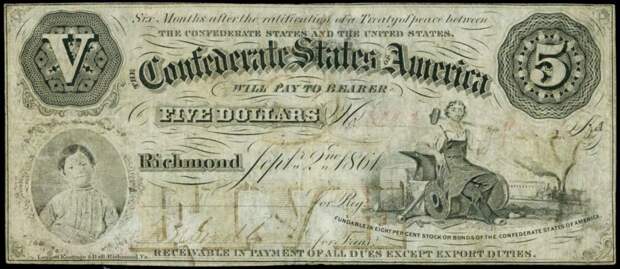 Six Months after the ratification of a Treaty of peace between
THE CONFEDERATE STATES AND THE UNITED STATES,
V THE Confederate States OF America 5
WILL PAY TO BEARER
FIVE DOLLARS No
Richmond Sept. 2nd 1861
for Reg.
FUNDABLE IN EIGHT PER CENT STOCK OR BONDS OF THE CONFEDERATE STATES OF AMERICA.
for Treas.
Leggett Keatinge & Ball Richmond Va.
RECEIVABLE IN PAYMENT OF ALL DUES EXCEPT EXPORT DUTIES.